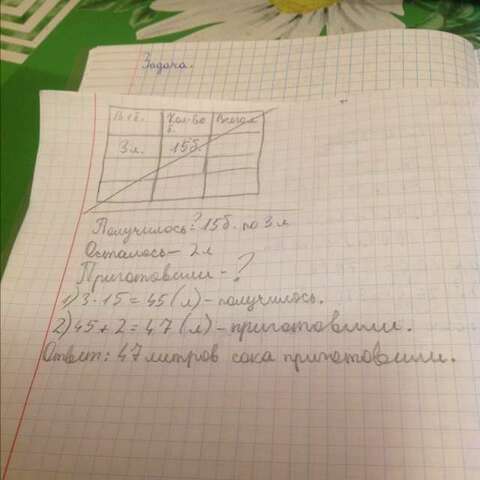 Задача.
В 1 б. Кол-во б. Всего л.
3 л. 15 б.
Получилось-? 15 б. по 3 л
Осталось - 2 л
Приготовили - ?
1) 3·15 = 45 (л) - получилось.
2) 45 + 2 = 47 (л) - приготовили.
Ответ: 47 литров сока приготовили.